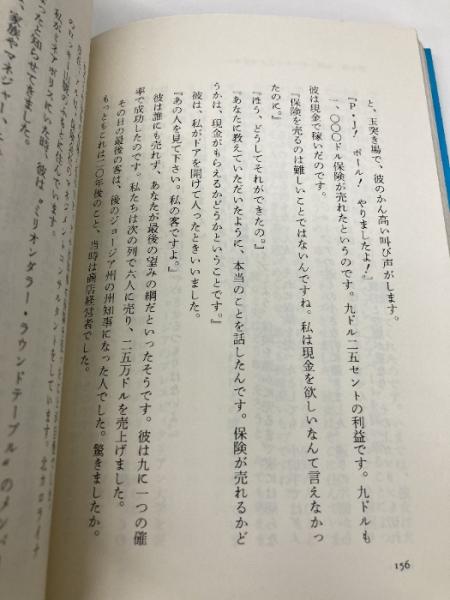 と、玉突き場で、彼のかん高い叫び声がします。
『P・J! ポール! やりましたよ!』
一、〇〇〇ドル保険が売れたというのです。九ドル二五セントの利益です。九ドルも
彼は現金で稼いだのです。
『保険を売るのは難しいことではないんですね。私は現金を欲しいなんて言えなかっ
たのに。』
『ほう、どうしてそれができたの。』
『あなたに教えていただいたように、本当のことを話したんです。保険が売れるかど
うかは、現金がもらえるかどうかということです。』
彼は、私がドアを開けて入ったときいいました。
『あの人を見て下さい。私の客ですよ。』
彼は誰にも売れず、あなたが最後の望みの綱だといったそうです。彼は九に一つの確
率で成功したのです。私たちは次の列で六人に売り、二五万ドルを売上げました。
その日の最後の客は、後のジョージア州の州知事になった人でした。驚きましたか。
もっともこれは二〇年後のこと、当時は商店経営者でした。
156
私がミネアポリスにいた時、彼は"ミリオンダラー・ラウンドテーブル"のメンバ
ったと知らせてきました。
家族やマネジャー、